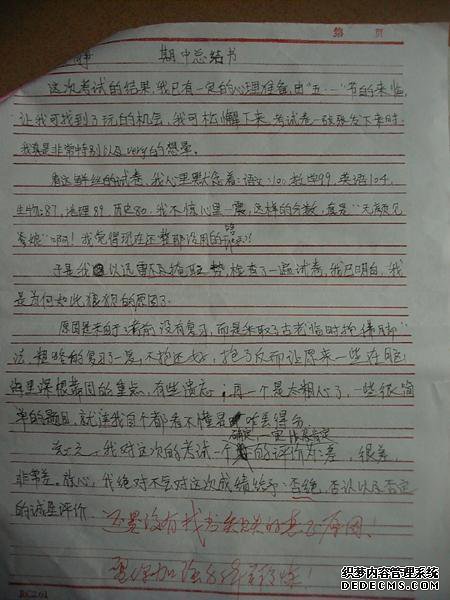 第 页
静 期中总结书
这次考试的结果,我已有一定的心理准备,由"五·一"节的来临,
让我可找到了玩的机会,我可松懈下来,考试卷一张张发下来时,
我真是非常特别以及very的想晕。
看这鲜红的试卷,我心里默念着:语文:100,数学99,英语104,
生物:87,地理89,历史80,我不惊心里一震,这样的分数,真是"无颜见
爹娘"啊!我觉得现在还整那没用的
于是我以迅雷不及掩耳势,检查了一遍试卷,我已明白,我
是为何如此狼狈的原因了。
原因是来自于考前没有复习,而是采取了古老临时抱佛脚"
法,粗略的复习了一是,不抱还好,抱了反而让原来一些在脑
海里深根蒂固的重点,有些遗忘,再一个是太粗心了,一些很简
单的题目,就连我自个都看不懂是咋丢得分。
确定,一定
我对这次的考试一个的评价为:差,很差,
非常差,放心,我绝对不会对这次成绩给予:否绝,否认以及否定
的诚恳评价
还要没有找出失误的真正原因!
要加强
RC201
织梦内容管理系统
DEDECMS.COM